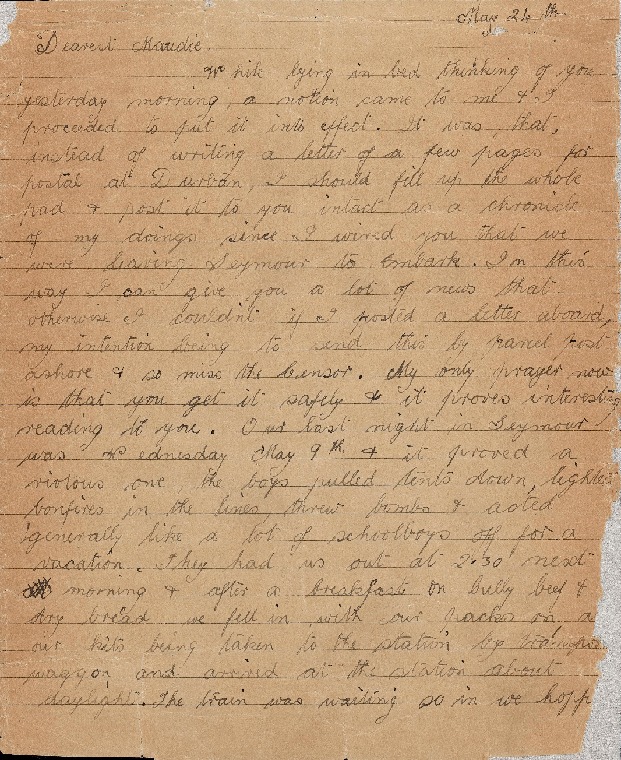 May 24th
Dearest Maudie.
While lying in bed thinking of you
yesterday morning, a notion came to me & I
proceeded to put it into effect. It was, that,
instead of writing a letter of a few pages for
postal at Durban, I should fill up the whole
pad & post it to you intact as a chronicle
of my doings since I wired you that we
were leaving Seymour to embark. In this
way I can give you a lot of news that
otherwise I couldn't if I posted a letter aboard,
my intention being to send this by parcel post
ashore & so miss the Censor. My only prayer now
is that you get it safely & it proves interesting
reading to you. Our last night in Seymour
was Wednesday May 9th & it proved a
riotous one, the boys pulled tents down, lighted
bonfires in the lines, threw bombs & acted
generally like a lot of schoolboys off for a
vacation. They had us out at 2.30 next
morning & after a breakfast on bully beef &
dry bread we fell in with our packs on &
our kits being taken to the station by
waggon and arrived at the station about
daylight. The train was waiting so in we hopp